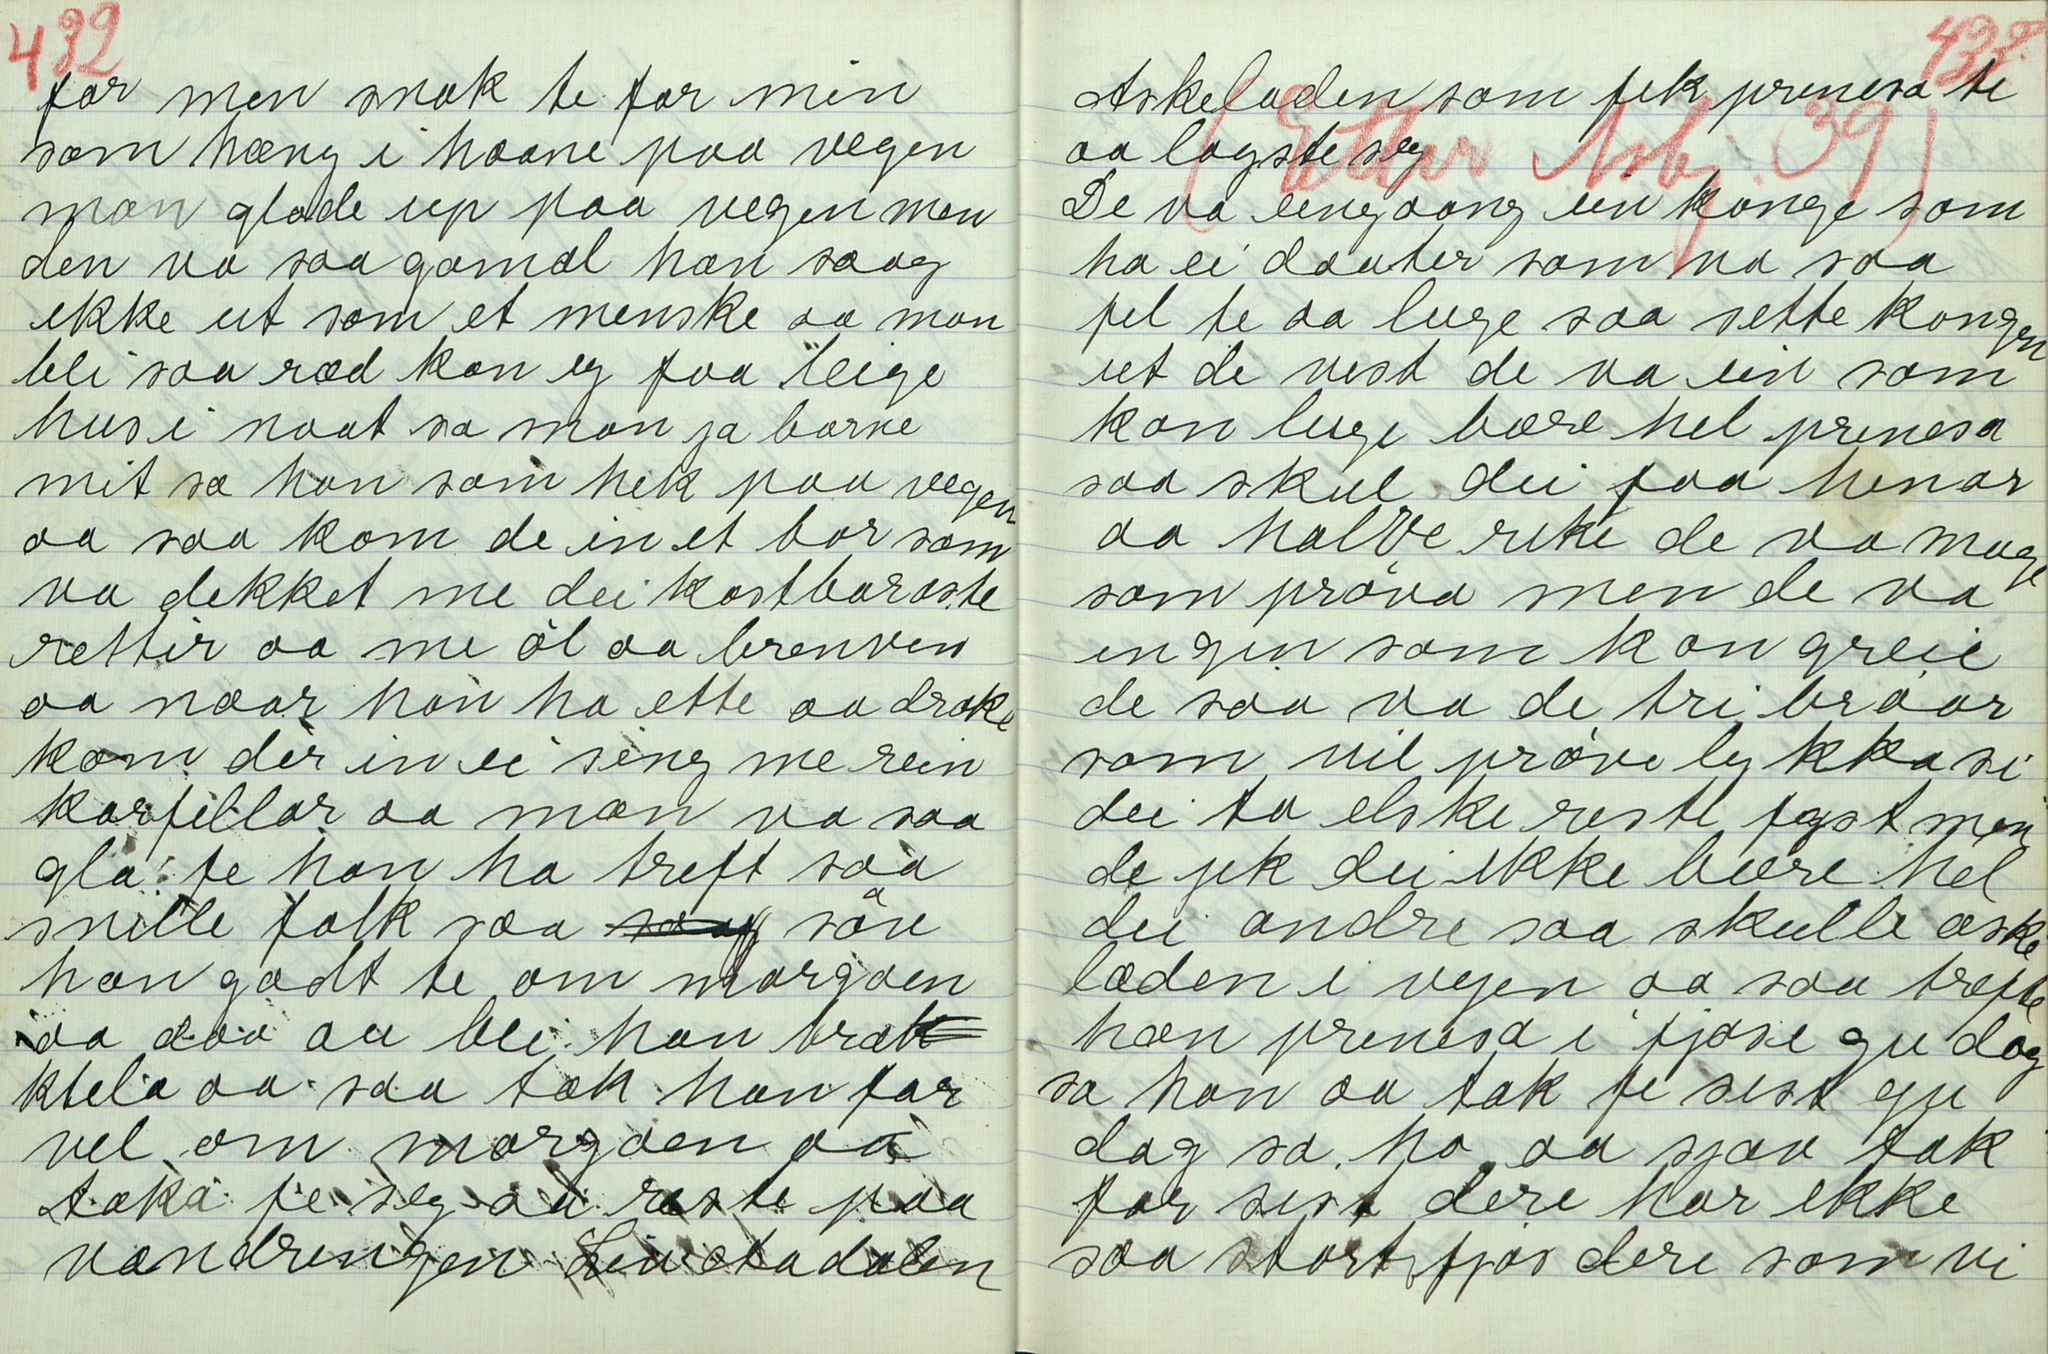 432
far men snak te far min
som hæng i haane paa vegen
man glade up paa vegen men
den va saa gamal han saag
ikke ut som et menske aa man
bli saa ræd kan eg faa leige
hus i naat sa man ja barne
mit sa han som hek paa vegen
aa saa kom de in et bor som
va dekket me dei kostbaraste
rettir aa me øl aa brenven
aa naar han ha ette aa drake
kom der in ei seng me rein
karfellar aa man va saa
gla fe han ha treft saa
snille folk saa søv
han godt te om morgaen
aa daa au blei han trak
ktela aa saa tok han far
vel om morgaen aa
taka fe seg au reste paa
vandrengen
433
Askeladen som fek prinesa te
aa logste seg
(Etter Asbj. 39)
De va eingaang ein konge som
ha ei daater som va saa
fel te aa luge saa sette kongen
ut de vest de va ein som
kan luge bære hel prinesa
saa skul dei faa henar
aa halve reke de va mage
som prøva men de va
engin som kan greie
de saa va de tri brøar
som vil prøve lykka si
dei to elske reste fyst men
de jek dei ikke bære hel
dei andre saa skulle aske
laden i vejen aa saa trefte
han prinesa i fjøse gu dag
sa han aa tak fe sist gu
dag sa ho aa sjøv tak
for sist dere har ikke
saa stort fjøs dere som vi